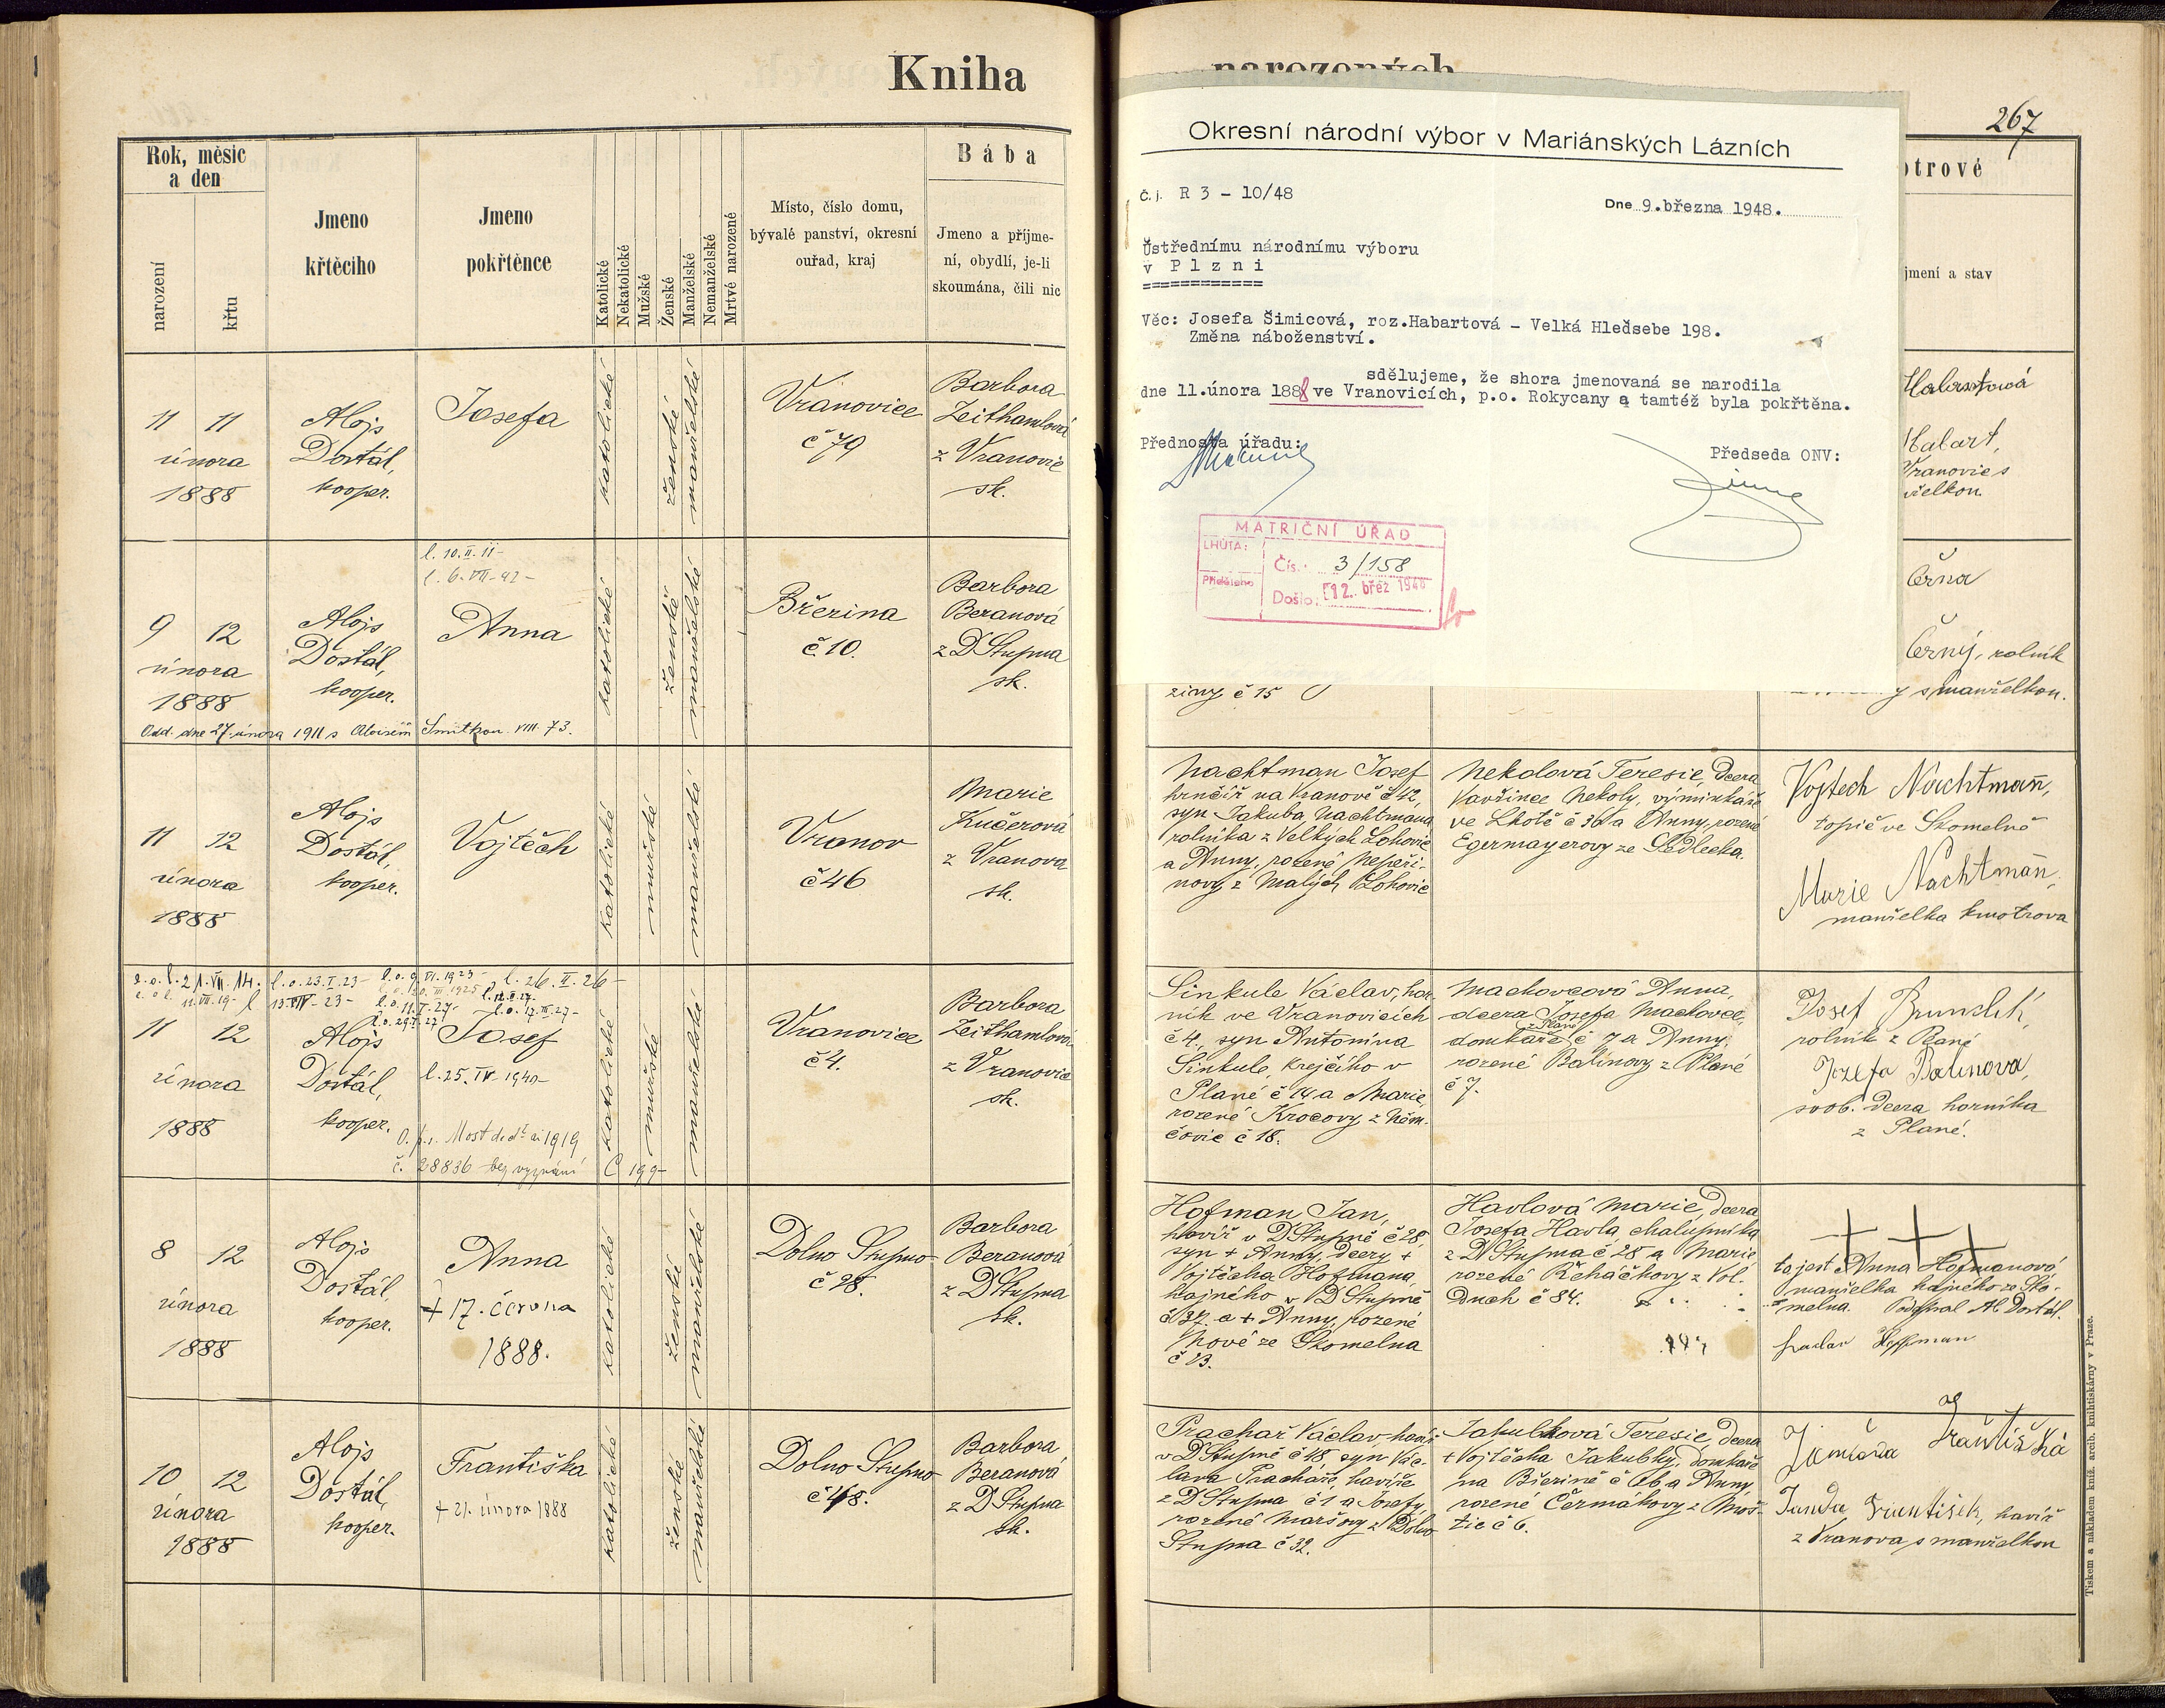 Kniha
narozených
267
Rok, měsíc
a den
narození
křtu
Jmeno
křtěcího
Jmeno
pokřtěnce
Katolické
Nekatolické
Mužské
Ženské
Manželské
Nemanželské
Mrtvě narozené
Místo, číslo domu,
bývalé panství, okresní
ouřad, kraj
Bába
Jmeno a příjme-
ní, obydlí, je-li
skoumána, čili nic
otrové
jmení a stav
11 11
února
1888
Alojs
Dostál,
kooper.
Josefa
katolické
ženské
manželské
Vranovice
č 79
Barbora
Zeithamlová
z Vranovic
sk.
Okresní národní výbor v Mariánských Lázních
Č.j. R 3 - 10/48
Dne 9.března 1948.
Ústřednímu národnímu výboru
v Plzni
============
Věc: Josefa Šimicová, roz.Habartová - Velká Hleďsebe 198.
Změna náboženství.
sdělujeme, že shora jmenovaná se narodila
dne 11.února 1888 ve Vranovicích, p.o. Rokycany a tamtéž byla pokřtěna.
Přednosta úřadu:
Předseda ONV:
MATRIČNÍ ÚŘAD
LHŮTA:
Přiděleno
Čís.: 3/158
Došlo: 12. břez 1948
Habartová
Habart,
Vranovic s
želkou.
l. 10.II.11-
l. 6.VII-42-
9 12
února
1888
Alojs
Dostál,
kooper.
Anna
katolické
ženské
manželské
Břerina
č 10.
Barbora
Beranová
z D Stupna
sk.
Odd. dne 27. února 1911 s Aloisem Smitkou VIII. 73.
ziny č 15
Černa
Černý, rolník
y s manželkou.
11 12
února
1888
Alojs
Dostál,
kooper.
Vojtěch
katolické
mužské
manželské
Vranov
č 46
Marie
Kučerová
z Vranova
sk.
Nachtman Josef
hrnčíř na Vranově č 42,
syn Jakuba Nachtmana
rolníka z Velkých Lohovic
a Anny, rozené Nepeři-
novy z Malých Lohovic
Nekolová Teresie, dcera
Vavřince Nekoly, výminkáře
ve Lhotě č 36 a Anny, rozené
Egermayerovy ze Sedlecka.
Vojtech Nachtman̄,
topič ve Skomelně
Marie Nachtman̄,
manželka kmotrova
l. o. 23.I.23-
l. 26.II.26-
11 12
února
1888
Alojs
Dostál,
kooper.
Josef
l. 25.IV.1940-
č. 28836 bez vyznání
katolické
mužské
manželské
Vranovice
č 4.
Barbora
Zeithamlová
z Vranovic
sk.
Sinkule Václav, hor-
ník ve Vranovicích
č 4, syn Antonína
Sinkule, krejčího v
Plané č 14 a Marie,
rozené Krocovy z Něm-
čovic č 18.
Machovcová Anna,
dcera Josefa Machovce,
z Plané
domkáře č 7 a Anny,
rozené Balinovy z Plané
č 7.
Josef
rolník z Plané
Jozefa Balinova,
svob. dcera horníka
z Plané.
8 12
února
1888
Alojs
Dostál,
kooper.
Anna
+ 17. června
1888.
katolické
ženské
manželské
Dolno Stupno
č 28.
Barbora
Beranová
z D Stupna
sk.
Hofman Jan,
havíř v D Stupně č 28,
syn + Anny, dcery +
Vojtěcha Hofmana,
hajného v D Stupně
č 37. a + Anny, rozené
Nové ze Skomelna
č 13.
Havlová Marie, dcera
Josefa Havla, chalupníka
z D Stupna č 28 a Marie
rozené Řeháčkovy z Vol-
duch č 84.
+ + +
to jest Anna Hofmanová
manželka hajného ze Sko-
melna. Podepsal Al. Dostál.
Hoffman
10 12
února
1888
Alojs
Dostál,
kooper.
Františka
+ 21. února 1888
katolické
ženské
manželské
Dolno Stupno
č 48.
Barbora
Beranová
z D Stupna
sk.
Prachař Václav, havíř
v D Stupně č 48, syn Vác-
lava Prachaře, havíře
z D Stupna č 1 a Josefy,
rozené Maršovy z Dolno
Stupna č 32.
Jakubková Teresie, dcera
+ Vojtěcha Jakubky, domkáře
na Břerině č 16 a Anny,
rozené Čermákovy z Moš-
tic č 6.
Františka
Janda František, havíř
z Vranova s manželkou
Tiskem a nákladem kníž. arcib. knihtiskárny v Praze.